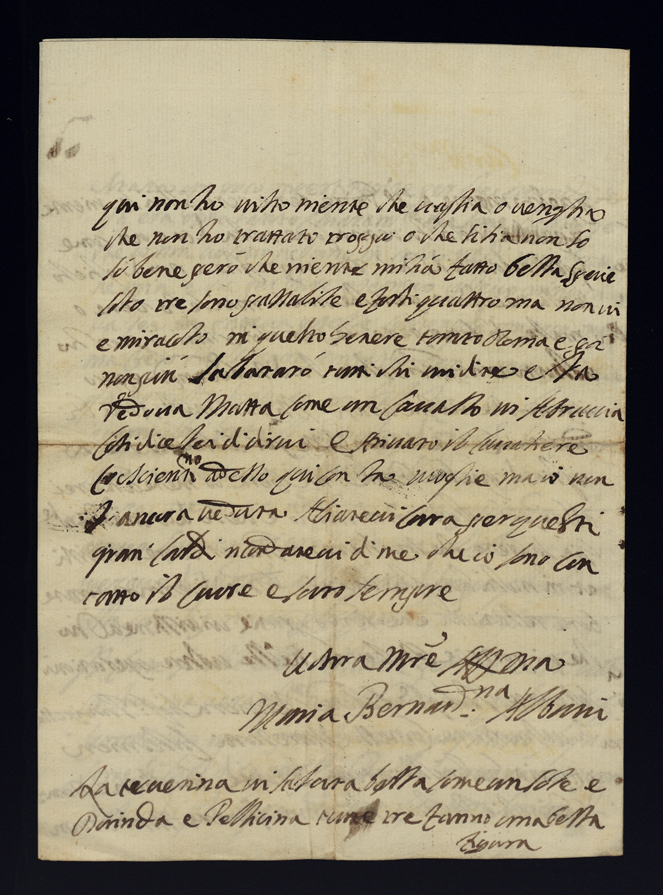 qui non ho visto niente che vaglia o veniglia
che non ho trattati troppi o che si sia non so
so bene però che niente mi ha fatto bella specie
solo tre sono passabile e forsi quattro ma non vi
e miracolo in questo genere tanto Roma e
non più salutaró tutti chi mi dite e sta
vedova Matta come un Cavallo vi abraccia
così dice lei di dirvi e arivato il Cavaliere
Crescientino adesso qui con la moglie ma io non
ancora veduta Stiatevi cara per questi
gran Caldi ricordatevi di me che io sono con
tutto il Cuore e saro sempre
Vostra Mre Affma
Maria Bernardna Albani
La vi saluta bella come un sole e
Dorinda e Pellicina tutte tre fanno una bella
figura